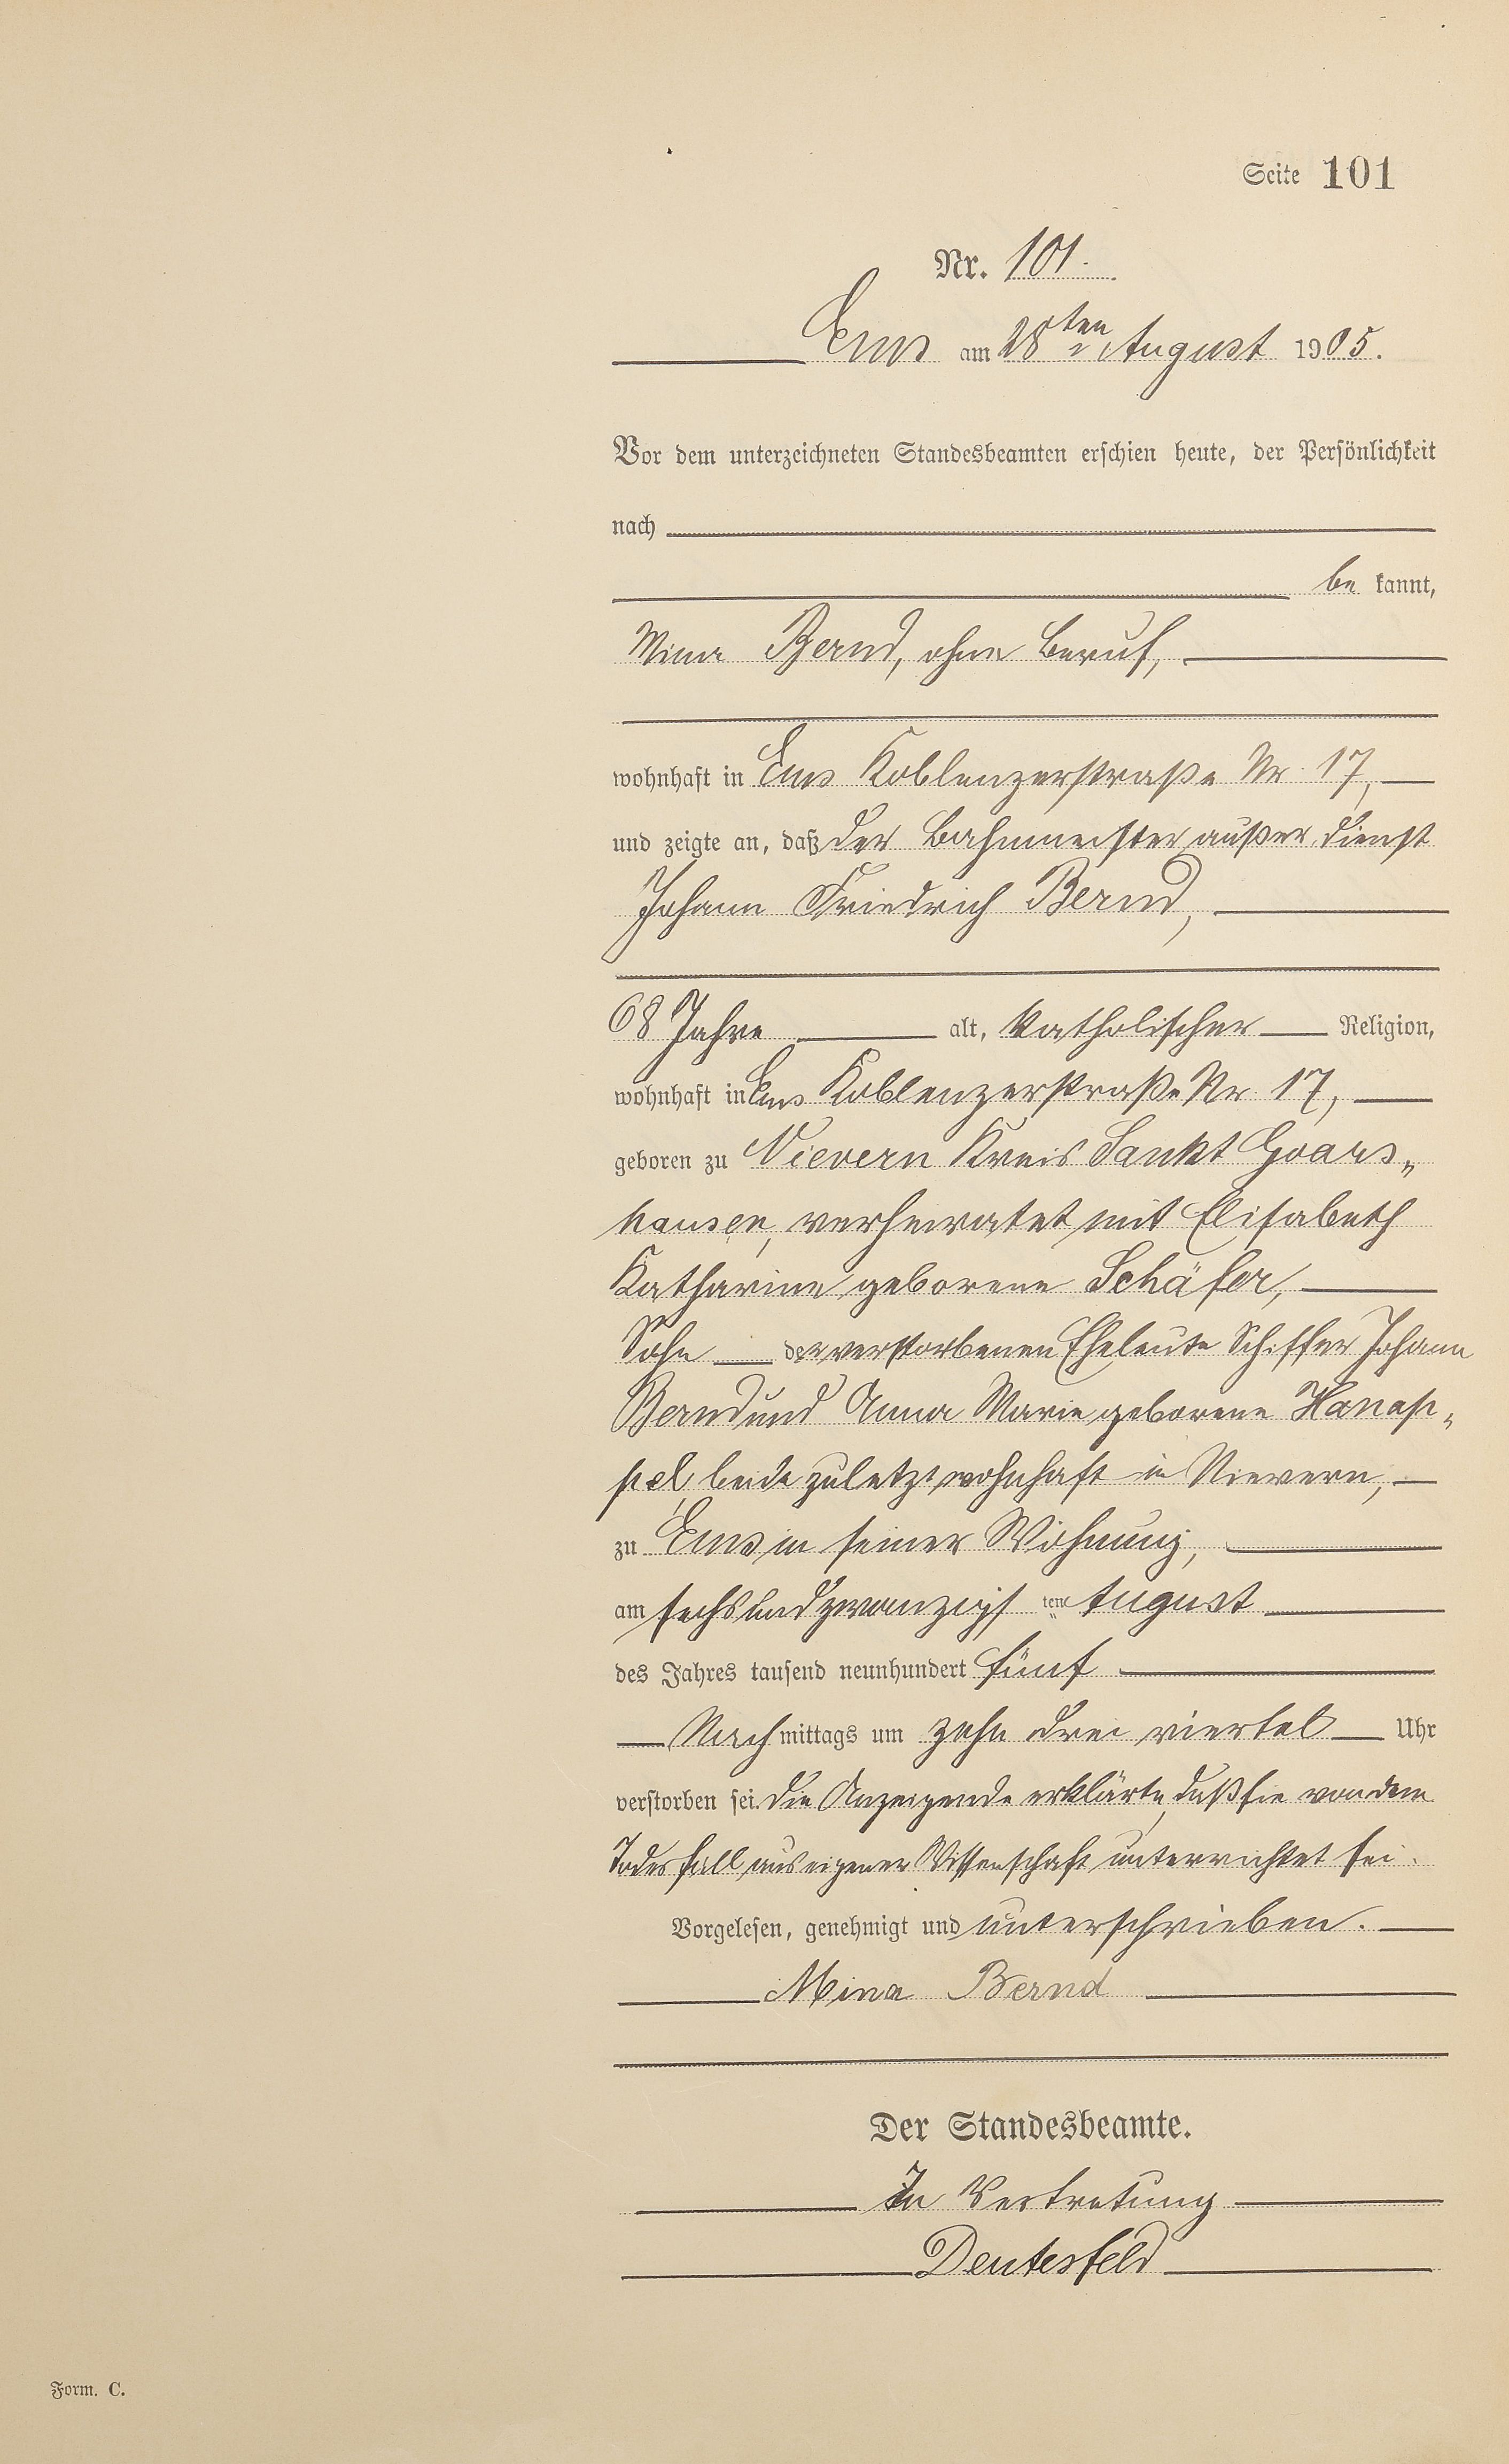 Seite 101
Nr. 101.
Ems am 28ten August 1905.
Vor dem unterzeichneten Standesbeamten erschien heute, der Persönlichkeit
nach
be kannt,
Mina Bernd, ohne Beruf,
wohnhaft in Ems Koblenzerstraße Nr. 17,
und zeigte an, daß der Bahnmeister außer Dienst
Johann Friedrich Bernd,
68 Jahre alt, katholischer Religion,
wohnhaft in Ems Koblenzerstraße Nr. 17,
geboren zu Nievern Kreis Sankt Goars„
hausen, verheiratet mit Elisabeth
Katharine geborene Schäfer,
Sohn der verstorbenen Eheleute Schiffer Johann
Bernd und Anna Marie geborene Hanap„
pel, beide zuletzt wohnhaft in Nievern,
zu Ems in seiner Wohnung,
am sechsundzwanzigs ten August
des Jahres tausend neunhundert fünf
Nachmittags um zehn drei viertel Uhr
verstorben sei. Die Anzeigende erklärte, daß sie von dem
Todesfall aus eigener Wissenschaft unterrichtet sei.
Vorgelesen, genehmigt und unterschrieben.
Mina Bernd
Der Standesbeamte.
In Vertretung
Deutesfeld
Form. C.